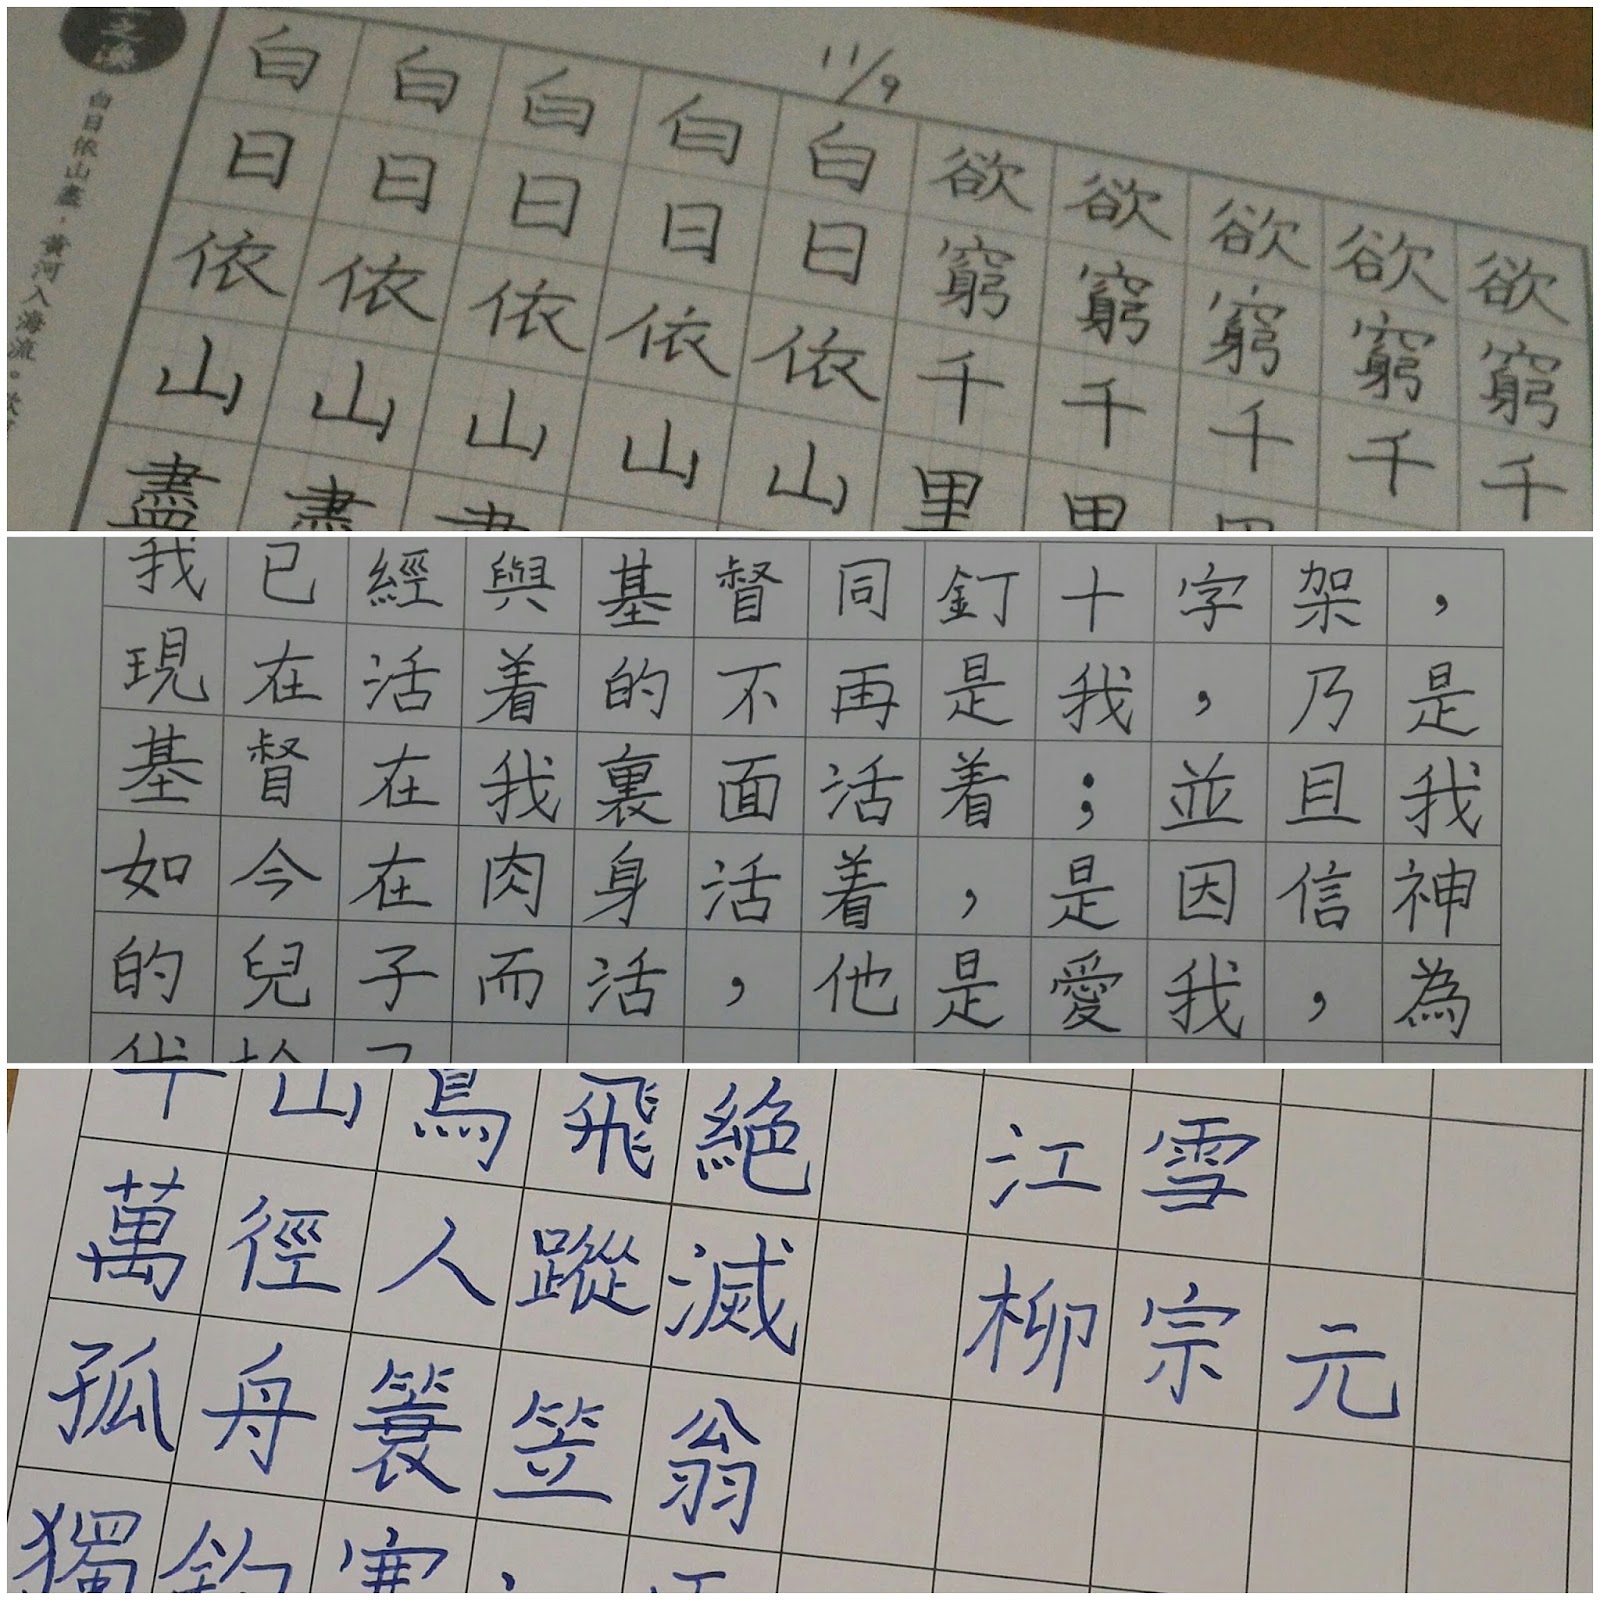 之渙
白日依山盡，黃河入海流。
11/9
白日依山盡
白日依山盡
白日依山
白日依山
白日依山
欲窮千里
欲窮千里
欲窮千
欲窮千
欲窮千
我已經與基督同釘十字架，
現在活着的不再是我，乃是
基督在我裏面活着；並且我
如今在肉身活着，是因信神
的兒子而活，他是愛我，為
千山鳥飛絕 江雪
萬徑人蹤滅 柳宗元
孤舟簑笠翁
獨釣寒